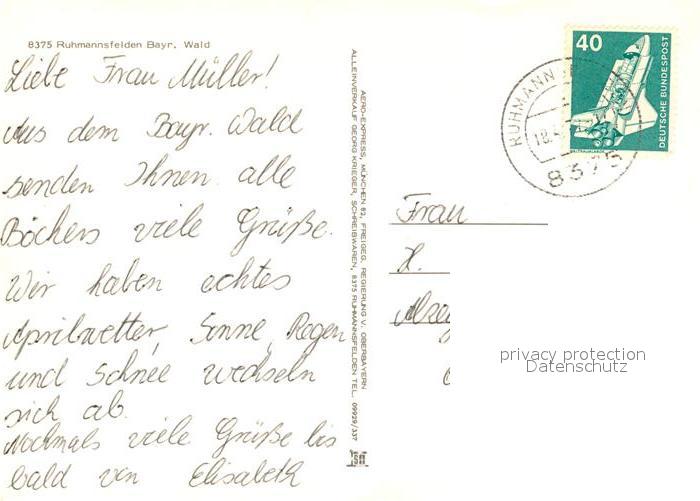 8375 Ruhmannsfelden Bayr. Wald
Liebe Frau Müller!
Aus dem Bayr. Wald
senden Ihnen alle
Böckers viele Grüße.
Wir haben echtes
Aprilwetter, Sonne, Regen
und Schnee wechseln
sich ab.
Nochmals viele Grüße bis
bald von Elisabeth
AERO-EXPRESS, MÜNCHEN 82, FREIGEG. REGIERUNG V. OBERBAYERN
ALLEINVERKAUF GEORG KRIEGER, SCHREIBWAREN, 8375 RUHMANNSFELDEN TEL. 09929/337
40
DEUTSCHE BUNDESPOST
RUHMANN
18.
8375
Frau
privacy protection
Datenschutz